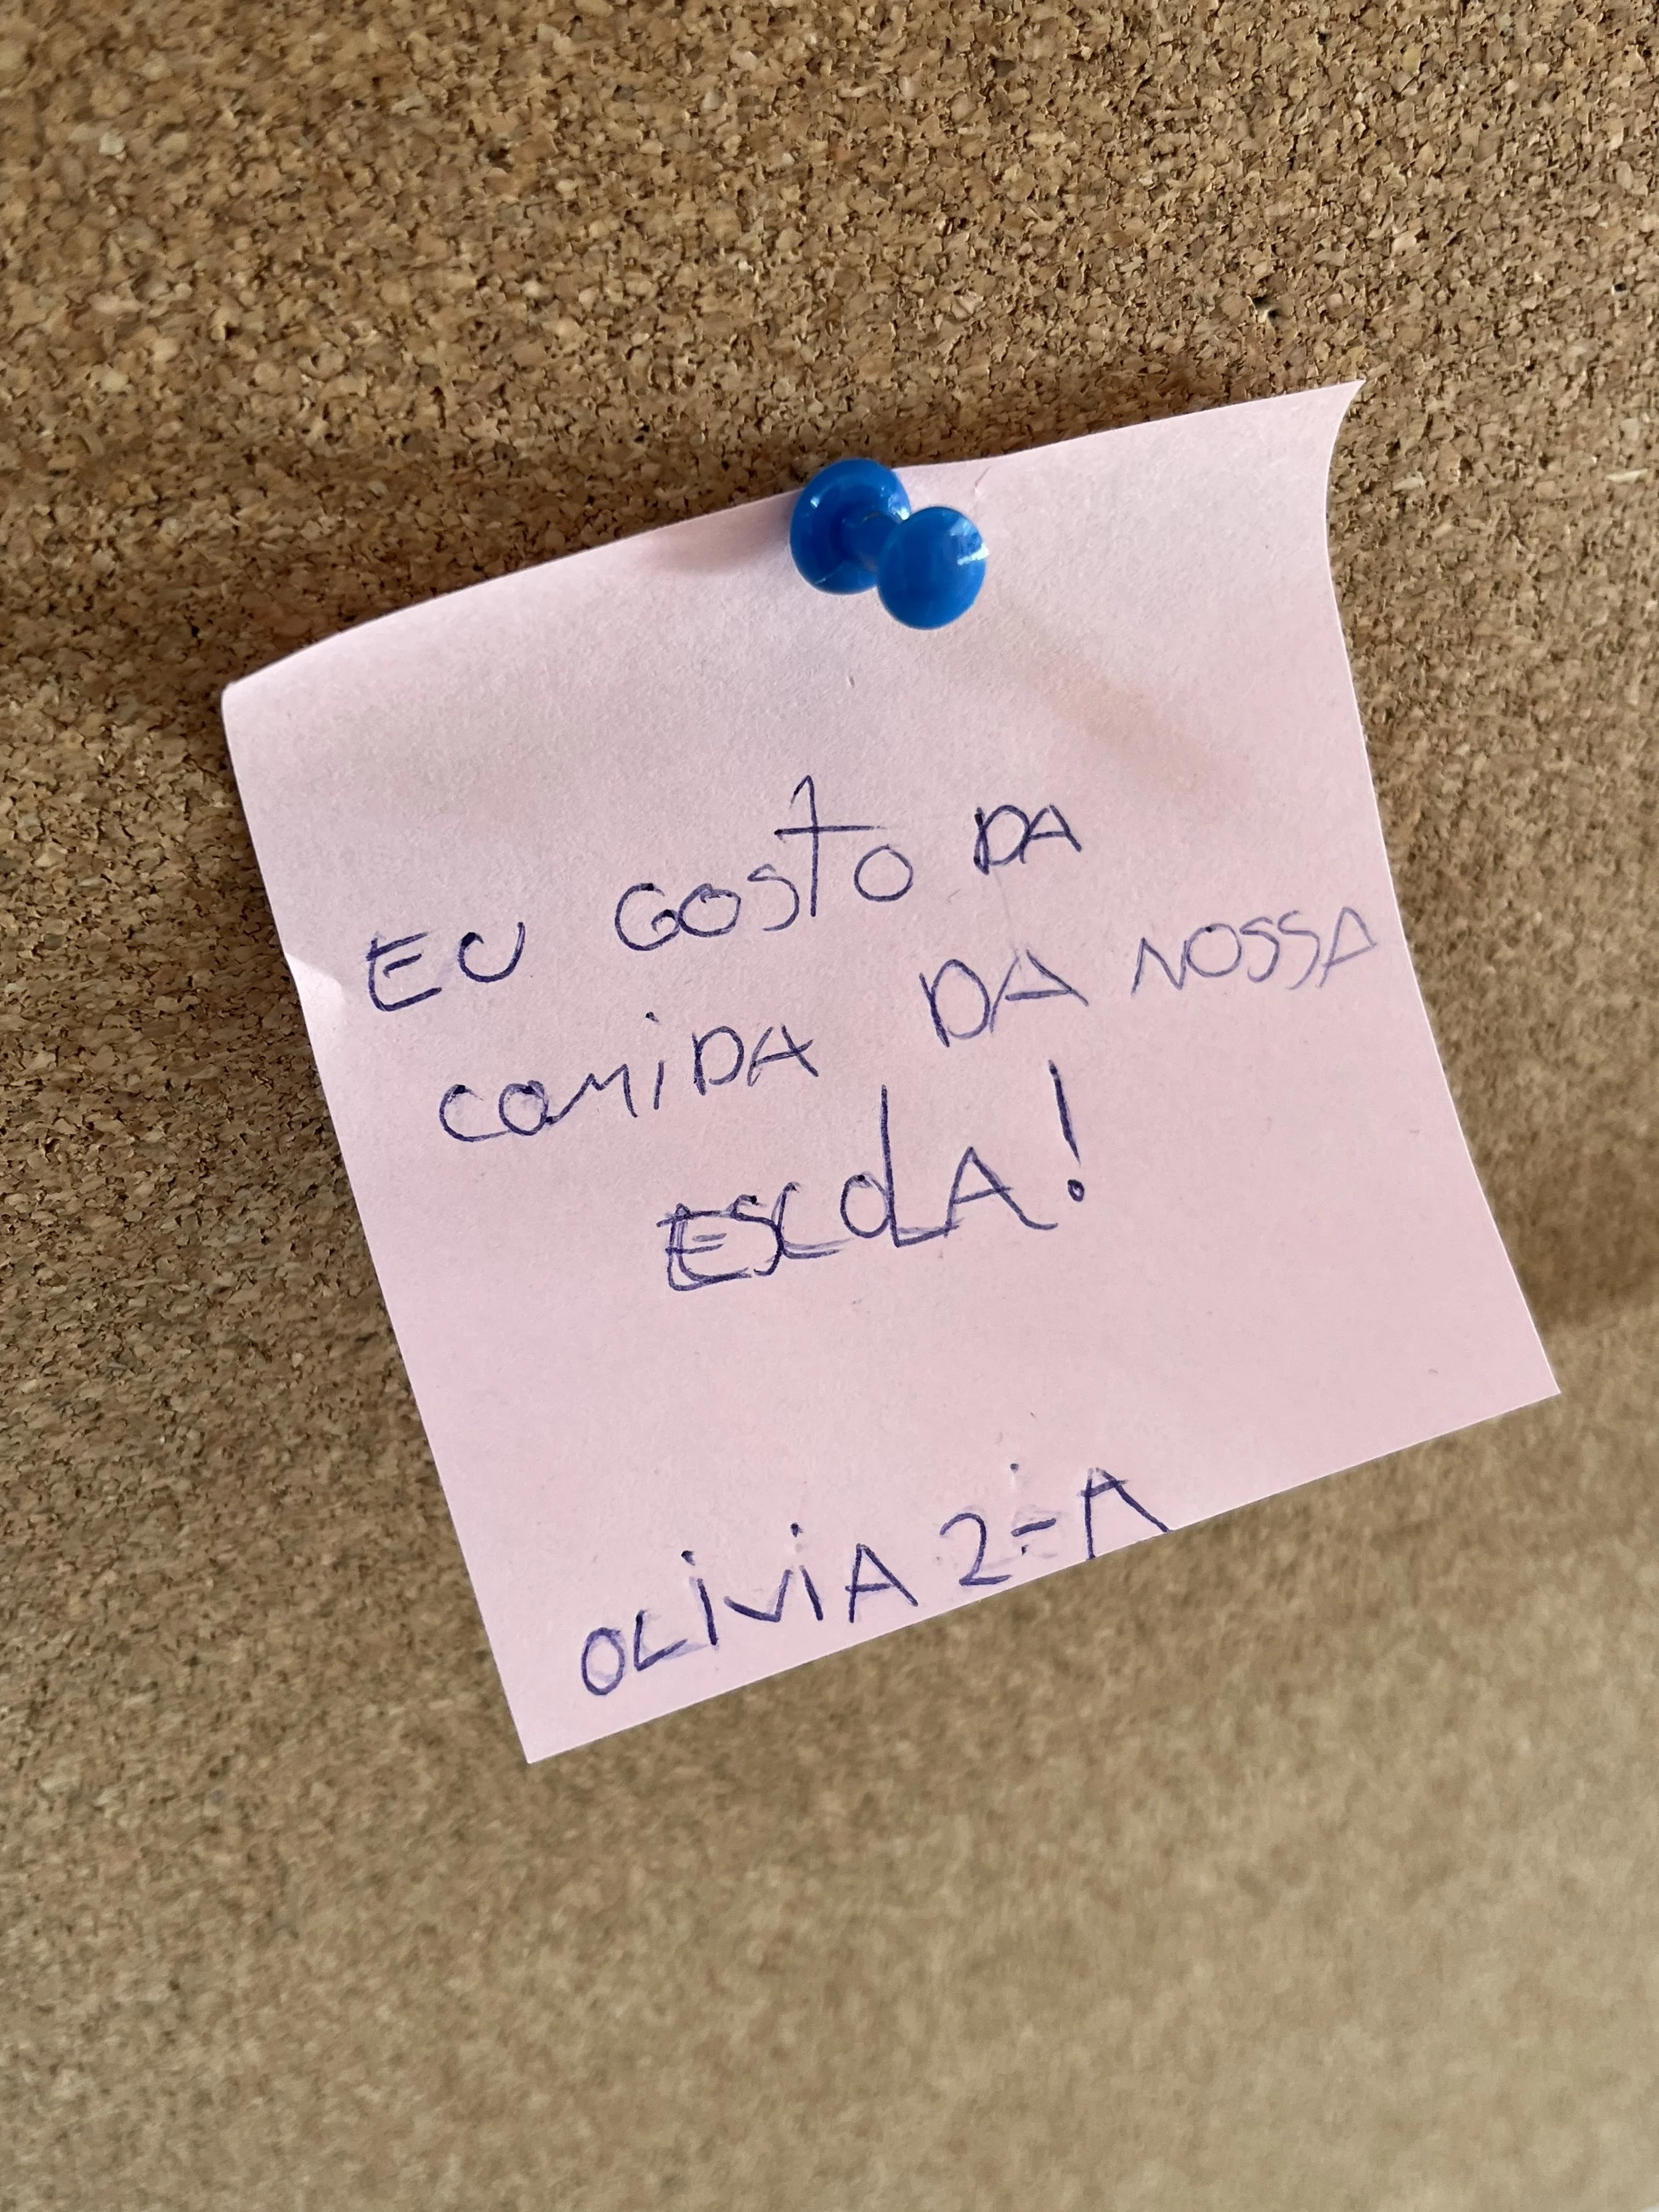 EU GOSTO DA
COMIDA DA NOSSA
ESCOLA!
OLIVIA 2-A